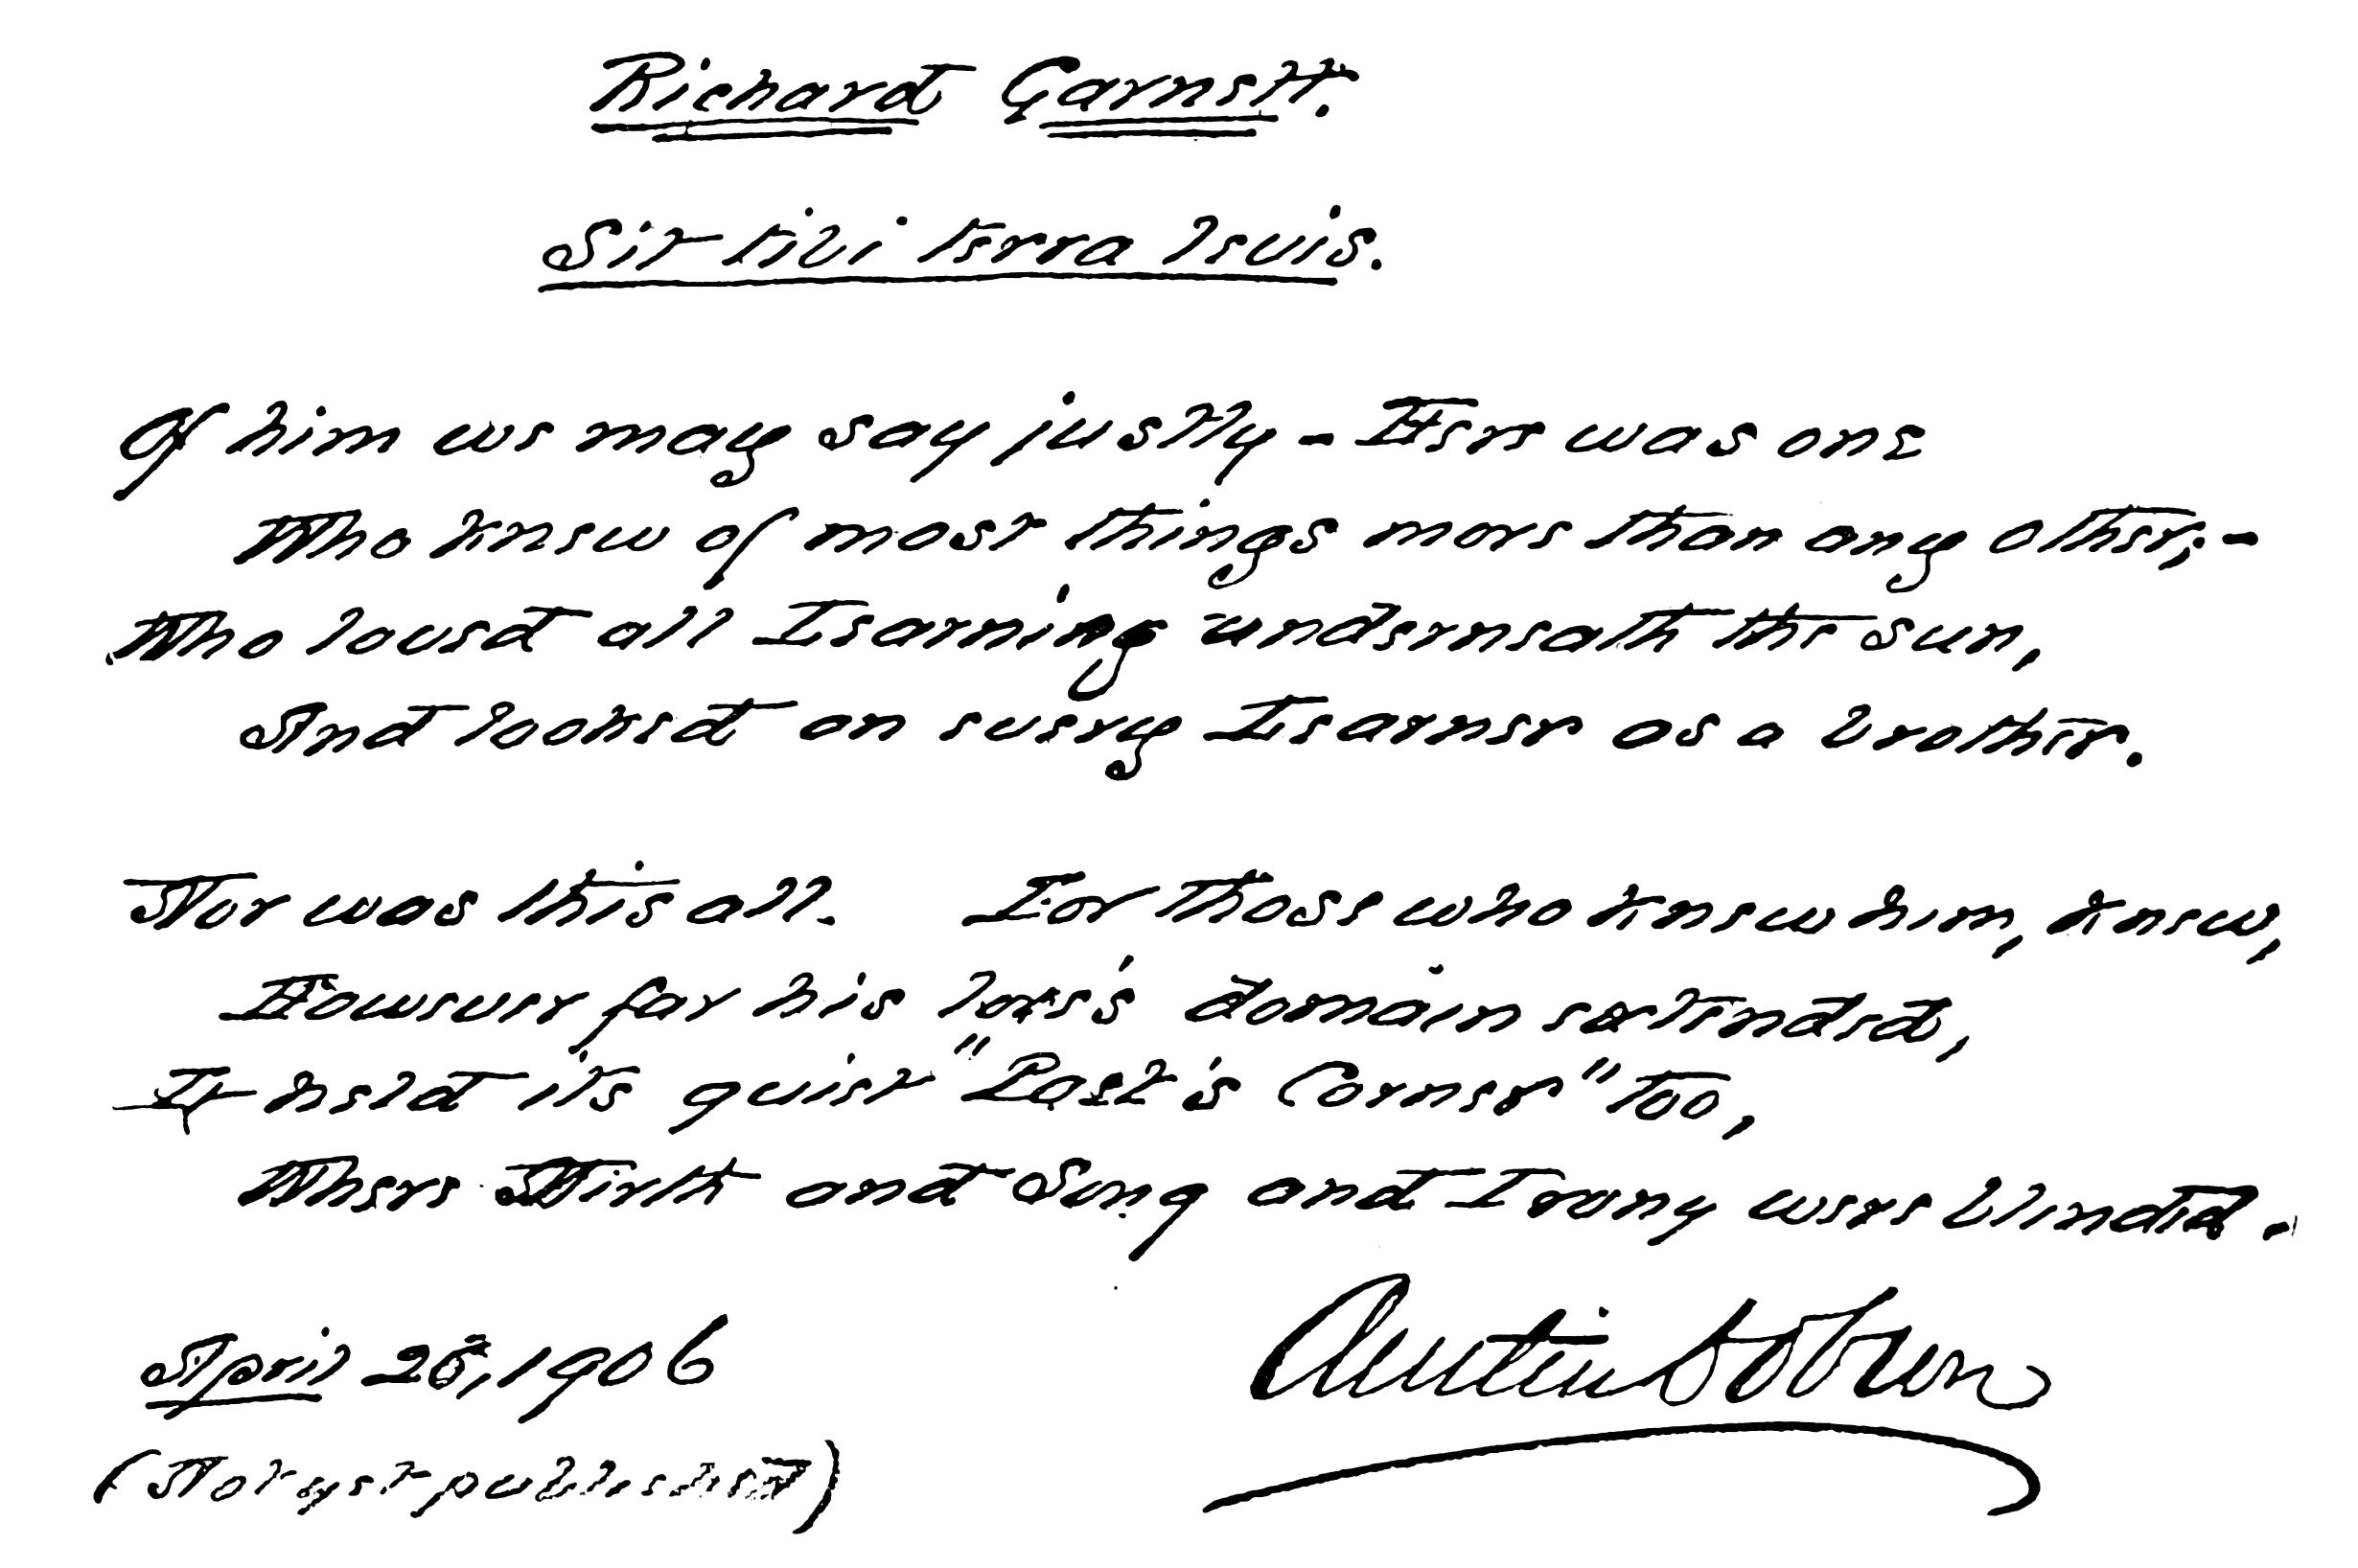 Richard Garnett.
Sit tibi terra levis.
Of him we may say justly – Here was one
Who knew of most things more than any other, –
Who loved all Learning underneath the sun,
And looked on every Learner as a brother.
Nor was this all. For those who knew him, knew,
However far his love's domain extended,
It held its quiet "Poet's Corner" too,
Where Mirth and Song and Irony were blended.
Austin Dobson
April 1906
(Not yet published)